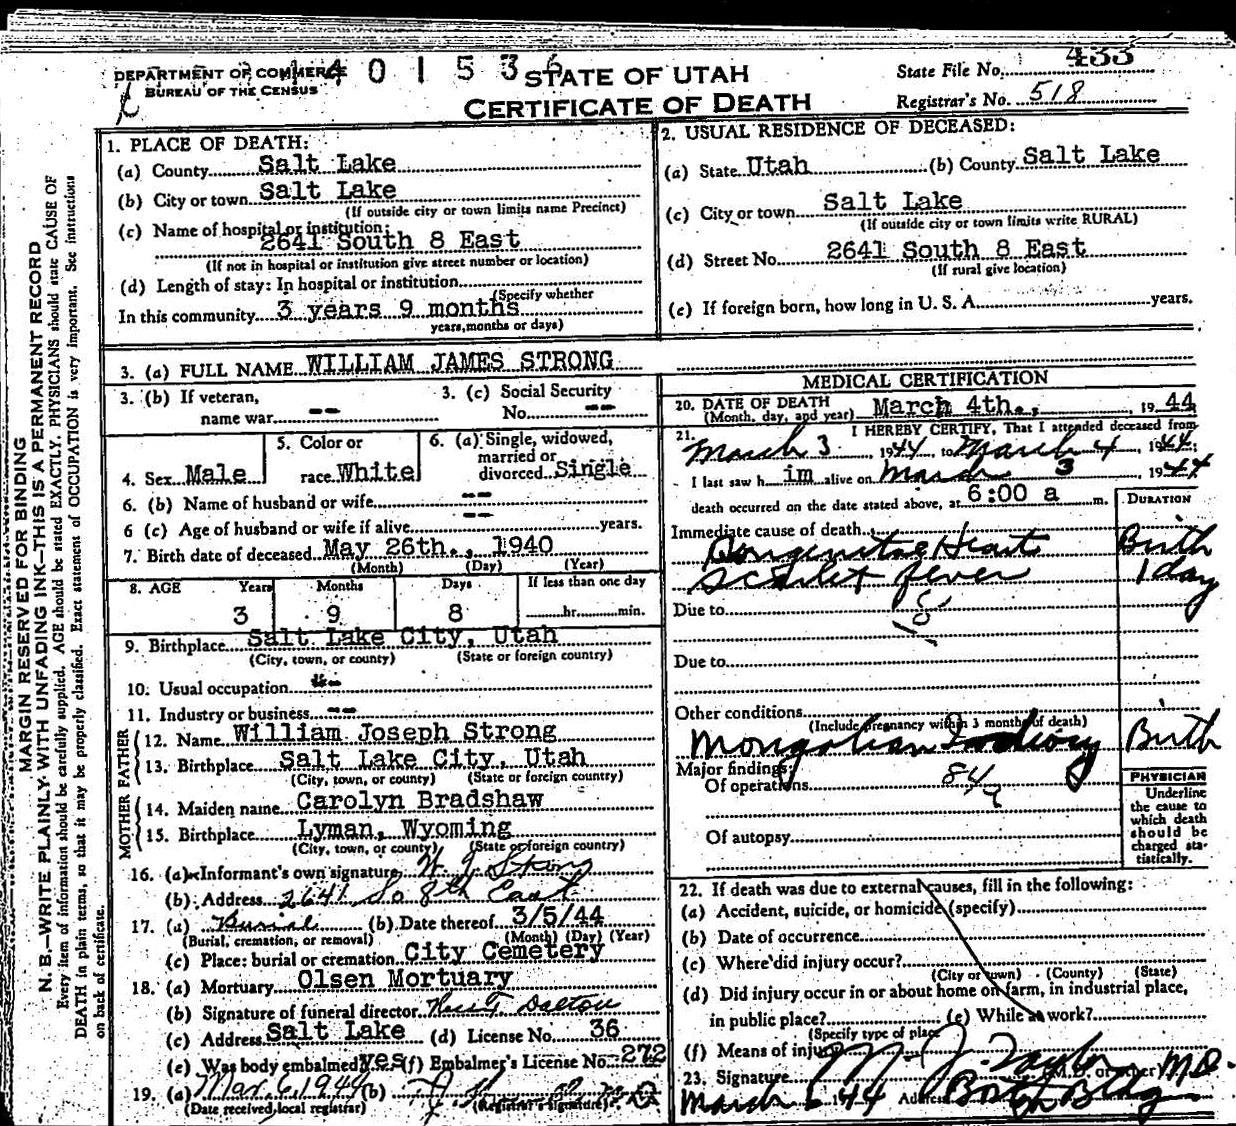 DEPARTMENT OF COMMERCE
BUREAU OF THE CENSUS
4 0 1 5 3 6
STATE OF UTAH
CERTIFICATE OF DEATH
State File No. 433
Registrar's No. 518
MARGIN RESERVED FOR BINDING
N. B.—WRITE PLAINLY WITH UNFADING INK—THIS IS A PERMANENT RECORD
Every item of information should be carefully supplied. AGE should be stated EXACTLY. PHYSICIANS should state CAUSE OF
DEATH in plain terms, so that it may be properly classified. Exact statement of OCCUPATION is very important. See instructions
on back of certificate.
1. PLACE OF DEATH:
(a) County Salt Lake
(b) City or town Salt Lake
(If outside city or town limits name Precinct)
(c) Name of hospital or institution:
2641 South 8 East
(If not in hospital or institution give street number or location)
(d) Length of stay: In hospital or institution
(Specify whether
In this community 3 years 9 months
years, months or days)
2. USUAL RESIDENCE OF DECEASED:
(a) State Utah (b) County Salt Lake
(c) City or town Salt Lake
(If outside city or town limits write RURAL)
(d) Street No. 2641 South 8 East
(If rural give location)
(e) If foreign born, how long in U. S. A. years.
3. (a) FULL NAME WILLIAM JAMES STRONG
3. (b) If veteran,
name war -- 
3. (c) Social Security
No. --
4. Sex Male
5. Color or
race White
6. (a) Single, widowed,
married or
divorced Single
6. (b) Name of husband or wife --
6 (c) Age of husband or wife if alive -- years.
7. Birth date of deceased May 26th., 1940
(Month) (Day) (Year)
8. AGE Years Months Days If less than one day
3 9 8 hr. min.
9. Birthplace Salt Lake City, Utah
(City, town, or county) (State or foreign country)
10. Usual occupation --
11. Industry or business --
FATHER
12. Name William Joseph Strong
13. Birthplace Salt Lake City, Utah
(City, town, or county) (State or foreign country)
MOTHER
14. Maiden name Carolyn Bradshaw
15. Birthplace Lyman, Wyoming
(City, town, or county) (State or foreign country)
16. (a) Informant's own signature W. J. Strong
(b) Address 2641 So 8th East
17. (a) Burial (b) Date thereof 3/5/44
(Burial, cremation, or removal) (Month) (Day) (Year)
(c) Place: burial or cremation City Cemetery
18. (a) Mortuary Olsen Mortuary
(b) Signature of funeral director Dalton
(c) Address Salt Lake (d) License No. 36
(e) Was body embalmed? yes (f) Embalmer's License No. 272
19. (a) Mar. 6, 1944 (b)
(Date received local registrar) (Registrar's signature)
MEDICAL CERTIFICATION
20. DATE OF DEATH
(Month, day, and year) March 4th., 1944
21. I HEREBY CERTIFY, That I attended deceased from
March 3, 1944, to March 4, 1944;
I last saw h im alive on March 3 1944
death occurred on the date stated above, at 6:00 a m.
DURATION
Immediate cause of death
Congenital Heart Birth
Scarlet fever 1 day
Due to
Due to
Other conditions
(Include pregnancy within 3 months of death)
Mongolian Idiocy Birth
Major findings:
Of operations
Of autopsy
PHYSICIAN
Underline
the cause to
which death
should be
charged sta-
tistically.
22. If death was due to external causes, fill in the following:
(a) Accident, suicide, or homicide (specify)
(b) Date of occurrence
(c) Where did injury occur?
(City or town) (County) (State)
(d) Did injury occur in or about home on farm, in industrial place,
in public place? (e) While at work?
(Specify type of place)
(f) Means of injury
23. Signature M. J. Taylor M.D.
(M.D. or other)
March 6 1944 Address Boston Bldg